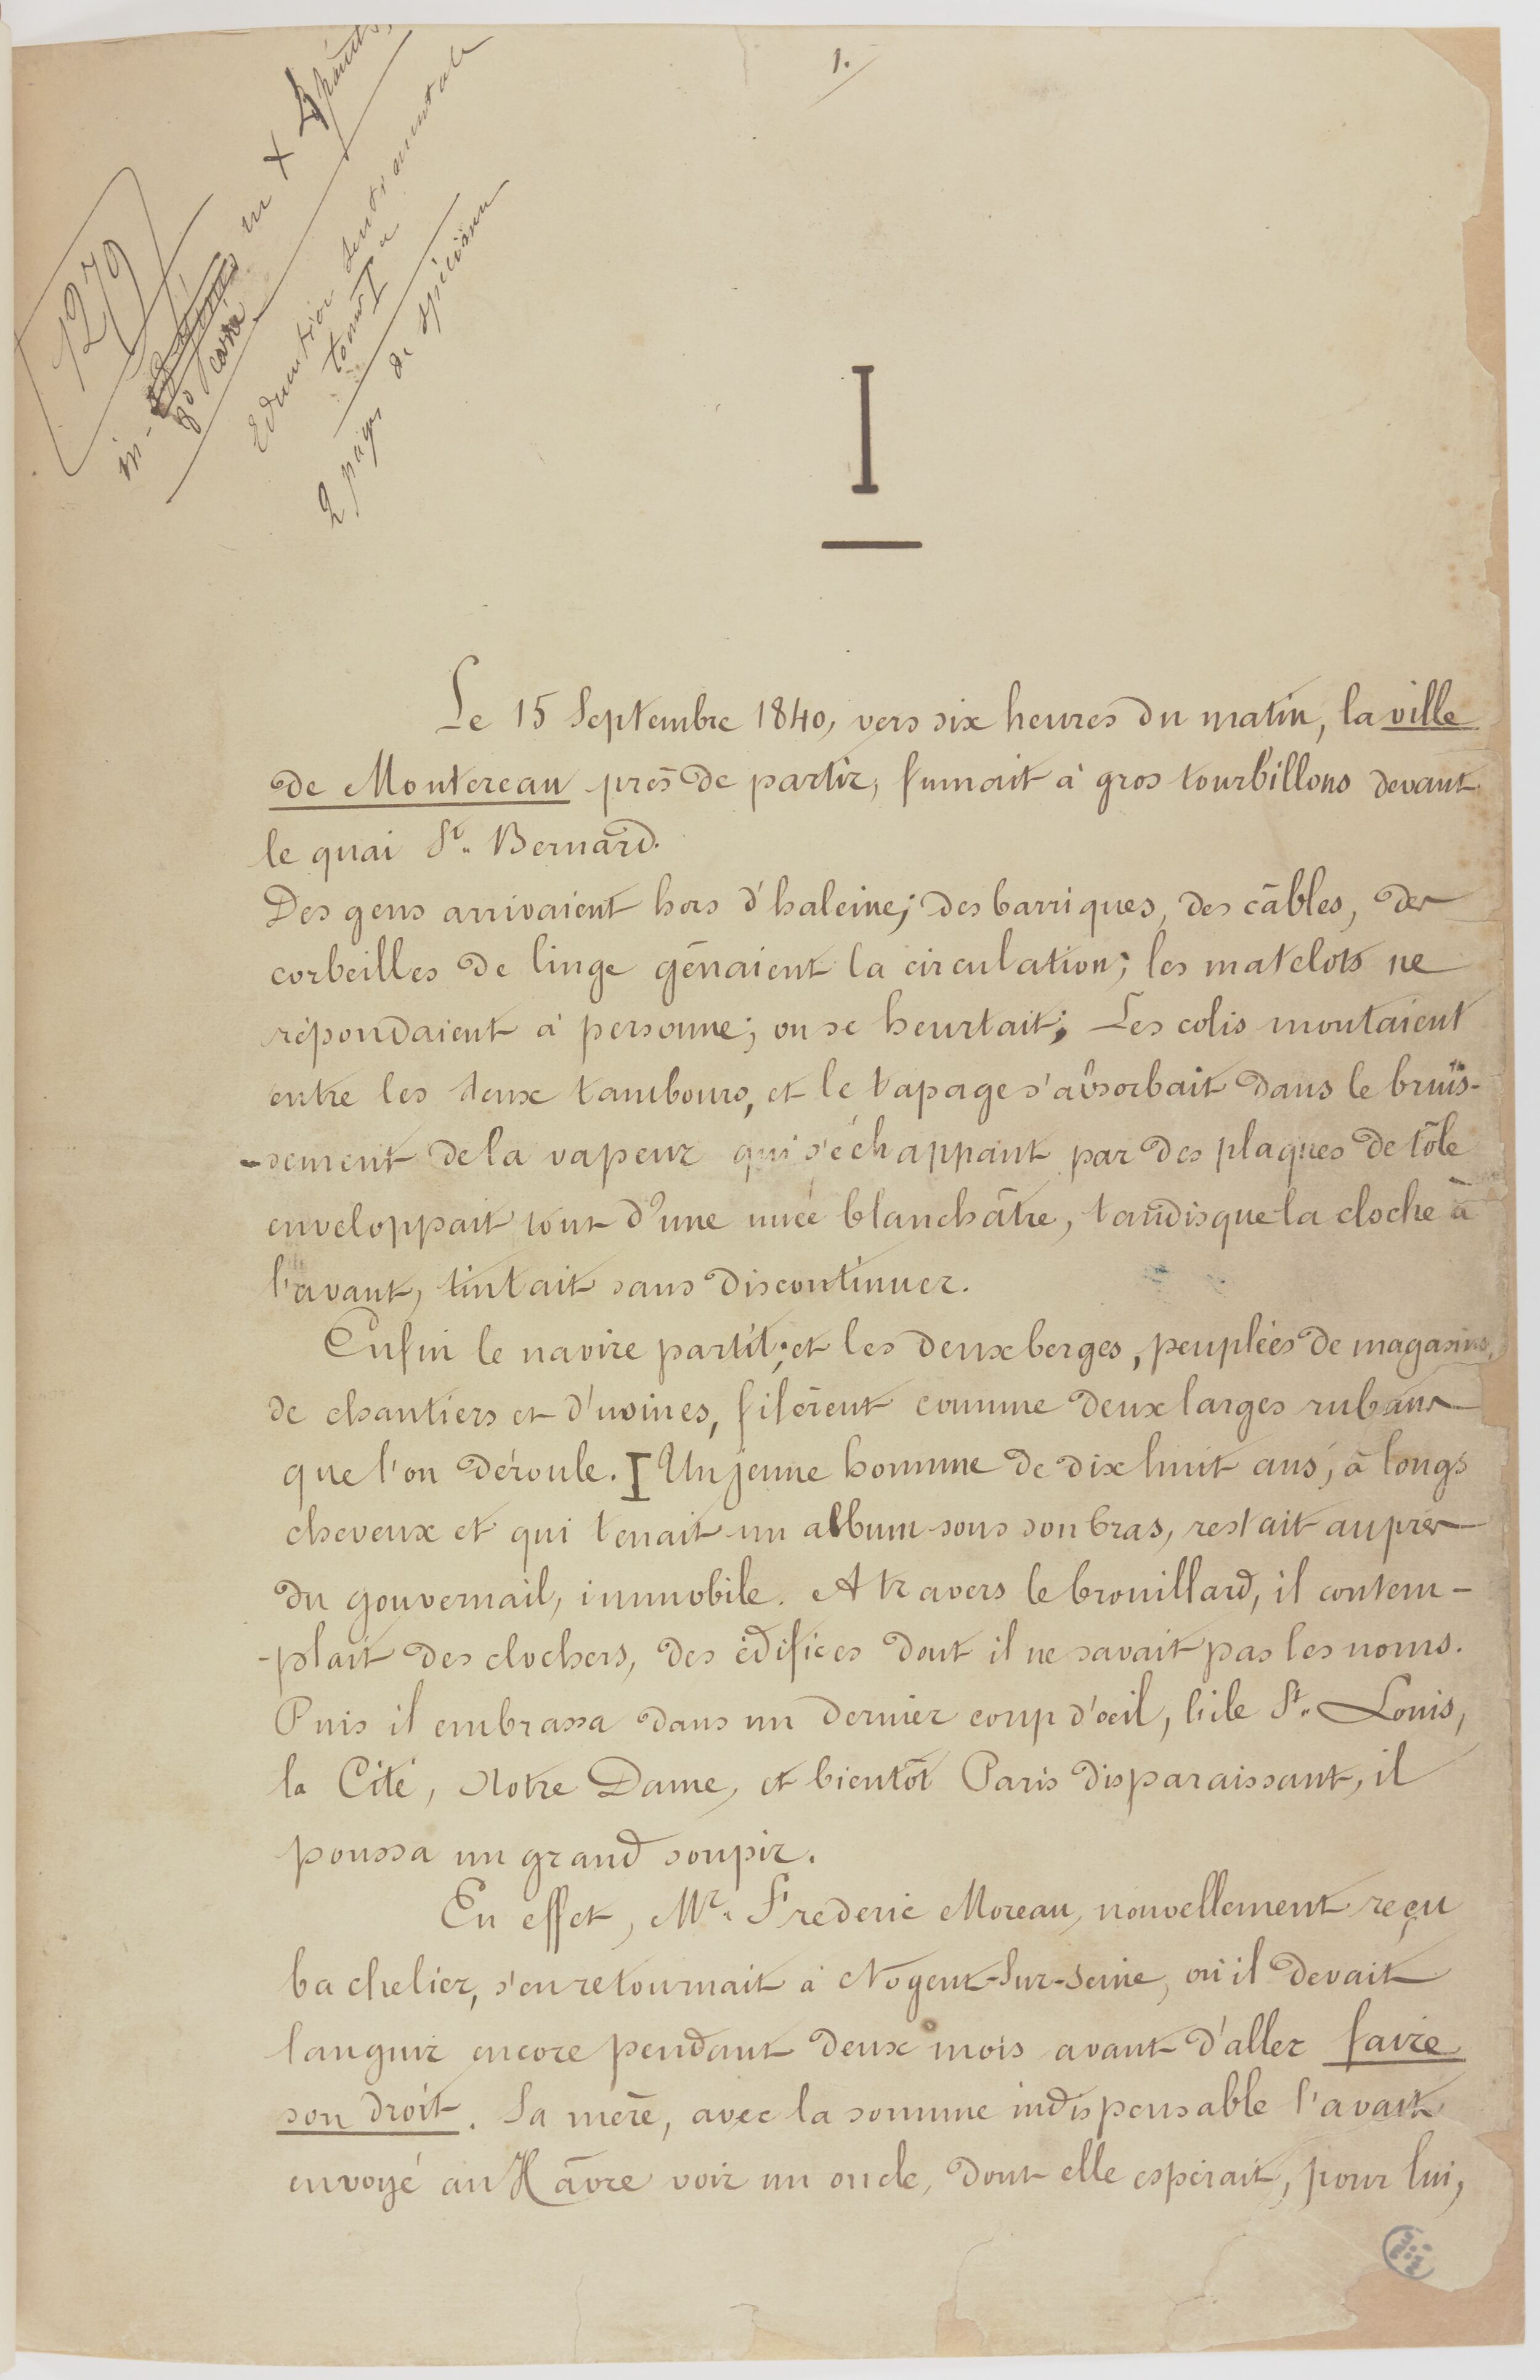 1.
1279
in-8º carré
in X 4 points
Education sentimentale
tome I er
2 pages de spécimen
I
Le 15 Septembre 1840, vers six heures du matin, la ville
de Montereau près de partir, fumait à gros tourbillons devant
le quai St. Bernard.
Des gens arrivaient hors d'haleine; des barriques, des câbles, des
corbeilles de linge gênaient la circulation; les matelots ne
répondaient à personne; on se heurtait; Les colis montaient
entre les deux tambours, et le tapage s'absorbait dans le bruis-
-sement de la vapeur qui s'échappant par des plaques de tôle
enveloppait tout d'une nuée blanchâtre, tandis que la cloche à
l'avant, tintait sans discontinuer.
Enfin le navire partit; et les deux berges, peuplées de magasins,
de chantiers et d'usines, filèrent comme deux larges rubans
que l'on déroule. [ Un jeune homme de dix huit ans, à longs
cheveux et qui tenait un album sous son bras, restait auprès
du gouvernail, immobile. A travers le brouillard, il contem-
-plait des clochers, des édifices dont il ne savait pas les noms.
Puis il embrassa dans un dernier coup d'œil, l'ile St. Louis,
la Cité, Notre Dame, et bientôt Paris disparaissant, il
poussa un grand soupir.
En effet, Mr. Frederic Moreau, nouvellement reçu
bachelier, s'en retournait à Nogent-Sur-Seine, où il devait
languir encore pendant deux mois avant d'aller faire
son droit. Sa mère, avec la somme indispensable l'avait
envoyé au Hâvre voir un oncle, dont elle espérait, pour lui,